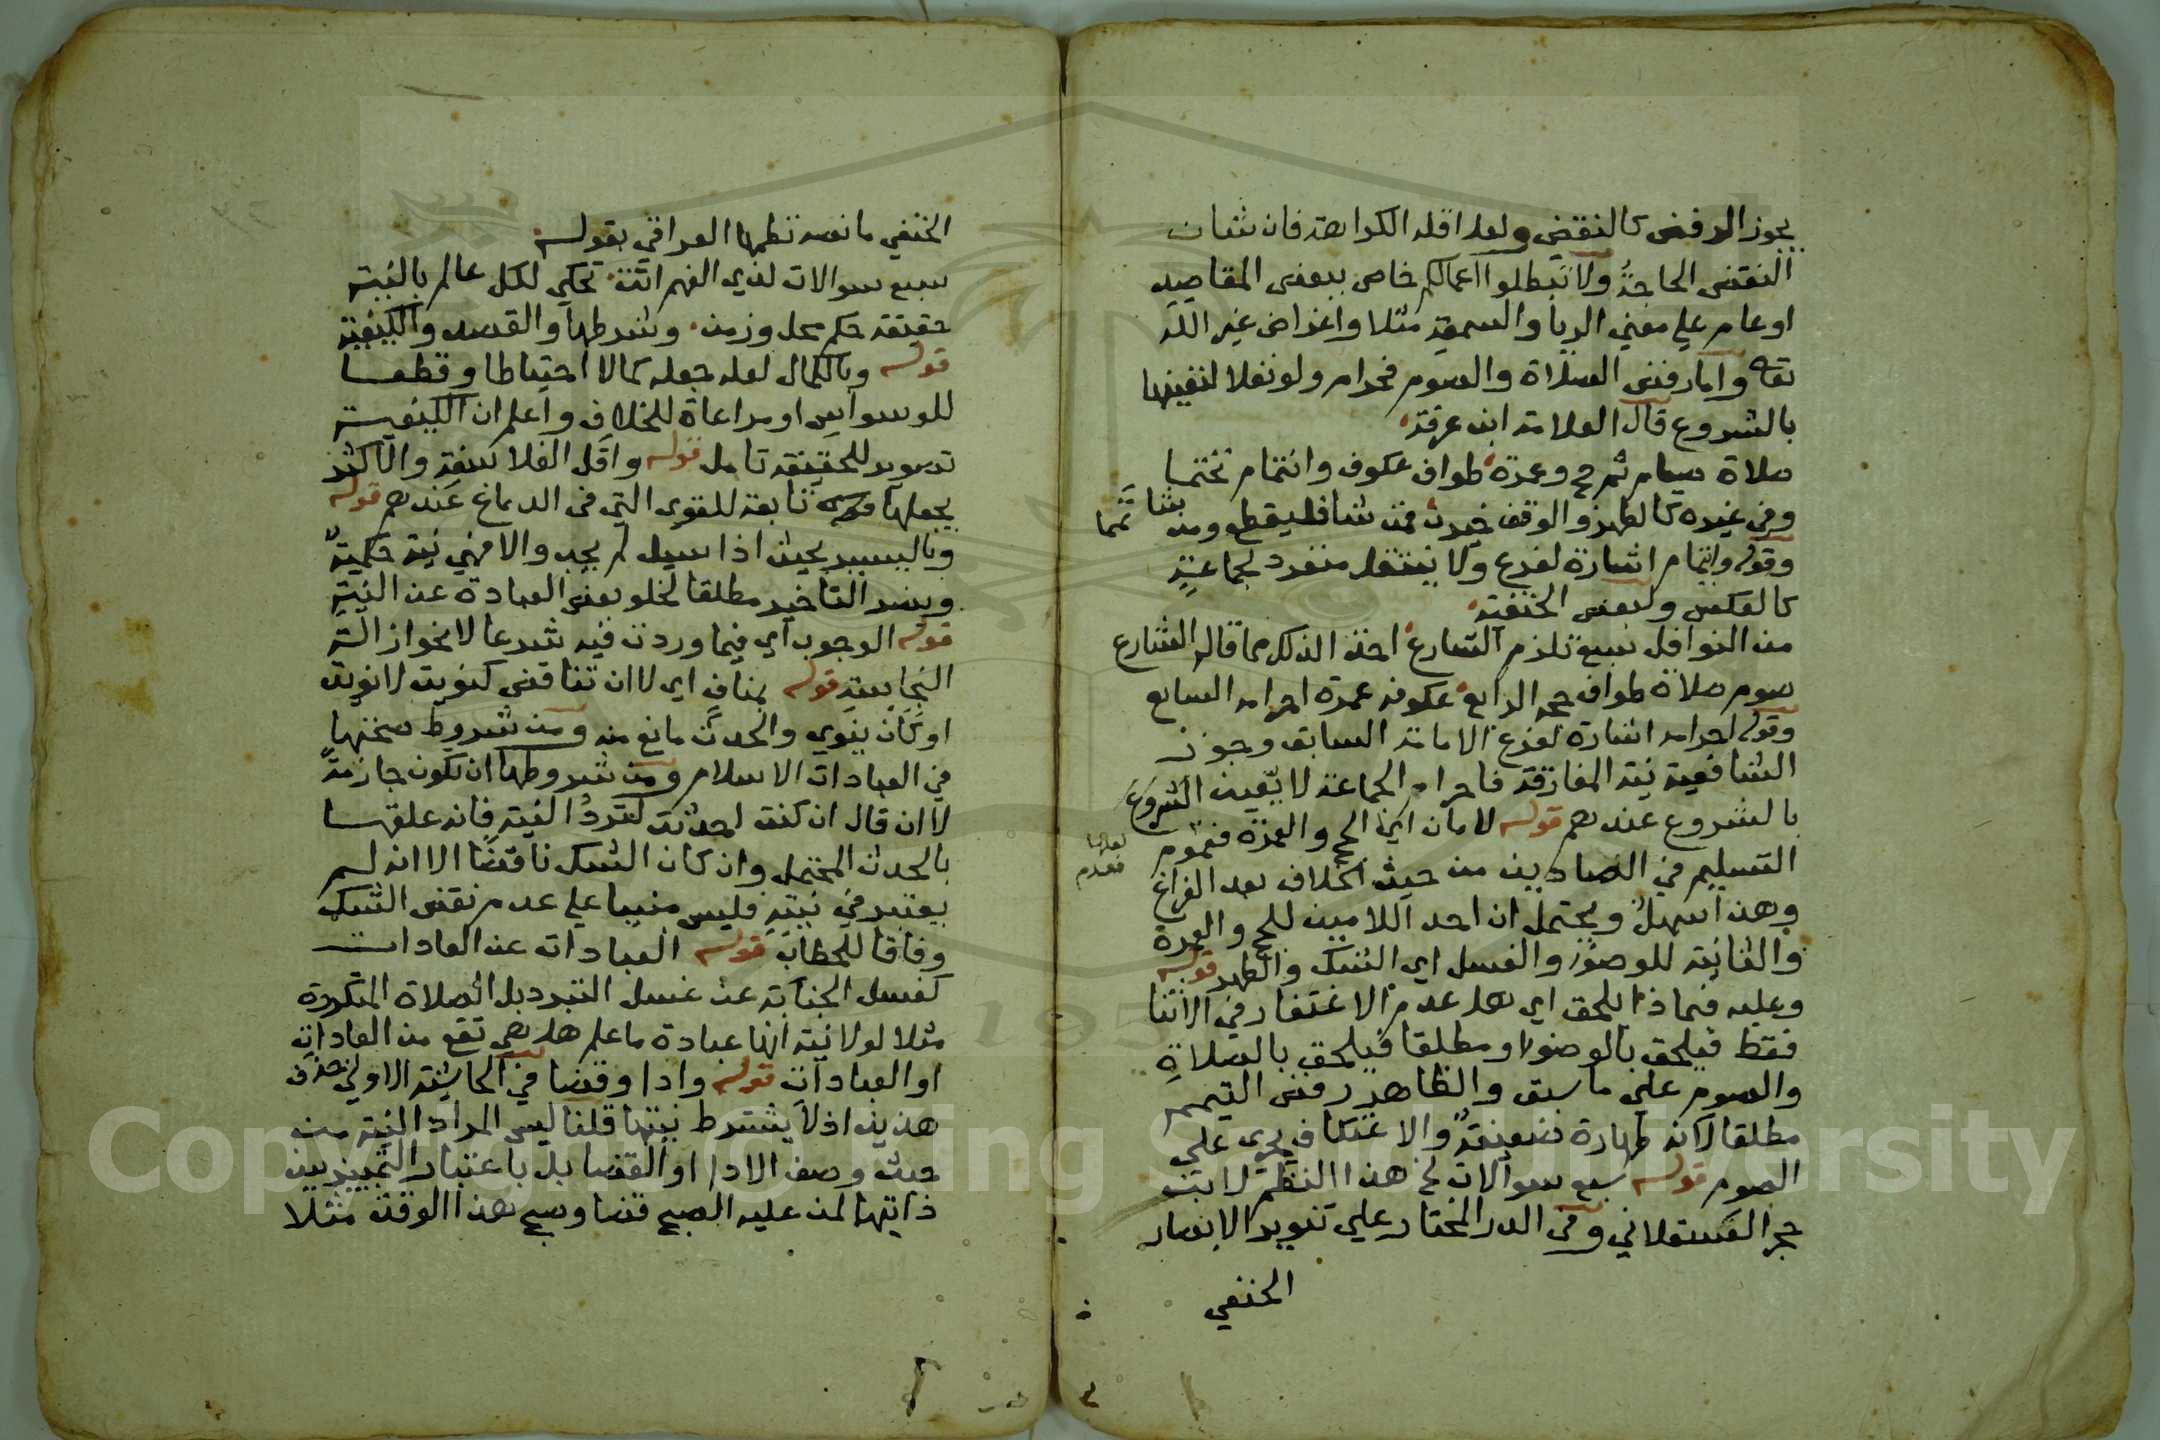 يجوز الرفض كالنقض ولعل اقله الكراهة فان شان
النقض الحاجة ولا تبطلوا اعمالكم خاص ببعض المقاصد
او عام على معنى الريا والسمعة مثلا واغراض غير الله
تعالى واما رفض الصلاة والصوم فحرام ولو نفلا لتعينها
بالشروع قال العلامة ابن عرفة
صلاة صيام ثم حج وعمرة طواف عكوف وائتمام تحتما
وفي غيره كالطهر والوقف خيرن فمن شا فليقطع ومن شا تمما
وقوله وائتمام اشارة لفرع ولا ينتقل منفرد لجماعة
كالعكس ولبعض الحنفية
من النوافل سبع تلزم الشارع اخذا لذلك مما قال الشارع
صوم صلاة طواف حجه الرابع عكوفه عمرة احرامه السابع
وقوله احرامه اشارة لفرع الامامة السابق وجوز
الشافعية نية المفارقة فاحرام الجماعة لا يتعين الشروع
بالشروع عندهم قوله لامان اي الحج والعمرة فعموم
لعلها فعدم
التسليم في الصادين من حيث الخلاف بعد الفراغ
وهذا اسهل ويحتمل ان احد اللامين للحج والعمرة
والثانية للوضوء والغسل اي النسك والطهر قوله
وعليه فماذا يلحق اي هل عدم الاغتفار في الاثنا
فقط فيلحق بالوضوء او مطلقا فيلحق بالصلاة
والصوم على ما سبق والظاهر رفض التيمم
مطلقا لانه طهارة ضعيفة والاعتكاف يجري على
الصوم قوله سبع سوالات الخ هذا النظم لابن
حجر العسقلاني وفي الدر المختار على تنوير الابصار
الحنفي
الحنفي ما نصه نظمها العراقي بقوله
سبع سوالات لذي الفهم اتت تحكى لكل عالم بالنية
حقيقة حكم محل وزمن وشرطها والقصد والكيفية
قوله وبالكمال لعله جعله كمالا احتياطا وقطعا
للوسواس او مراعاة للخلاف واعلم ان الكيفية
تصوير للحقيقة تامل قوله واقل الفلاسفة والاكثر
يجعلها قوله تابعة للقوى التي في الدماغ عندهم قوله
وباليسير بحيث اذا سيل لم يجب والا فهي نية حكمية
ويضر التاخير مطلقا لخلو بعض العبادة عن النية
قوله الوجوب اي فيما وردت فيه شرعا لا نحو ازالة
النجاسة قوله بمناف اي لا ان تناقض كنويت لا نويت
او كان ينوي والحدث مانع منه ومن شروط صحتها
في العبادات الاسلام ومن شروطها ان تكون جازمة
لا ان قال ان كنت احدثت لتردد النية فانه علقها
بالحدث المحتمل وان كان الشك ناقضا الا انه لم
يعتبر في نيته فليس مبنيا على عدم نقض الشك
وفاقا للحطاب قوله العبادات عن العادات
كغسل الجنابة عن غسل التبرد بل الصلاة المتكررة
مثلا لولا نية انها عبادة ما علم هل هي تقع من العادات
او العبادات قوله وادا وقضا في الحاشية الاولى حذف
هذين اذ لا يشترط نيتها قلنا ليس المراد النية من
حيث وصف الادا او القضا بل باعتبار التمييز بين
ذاتيها لمن عليه الصبح قضا وصبح هذا الوقت مثلا